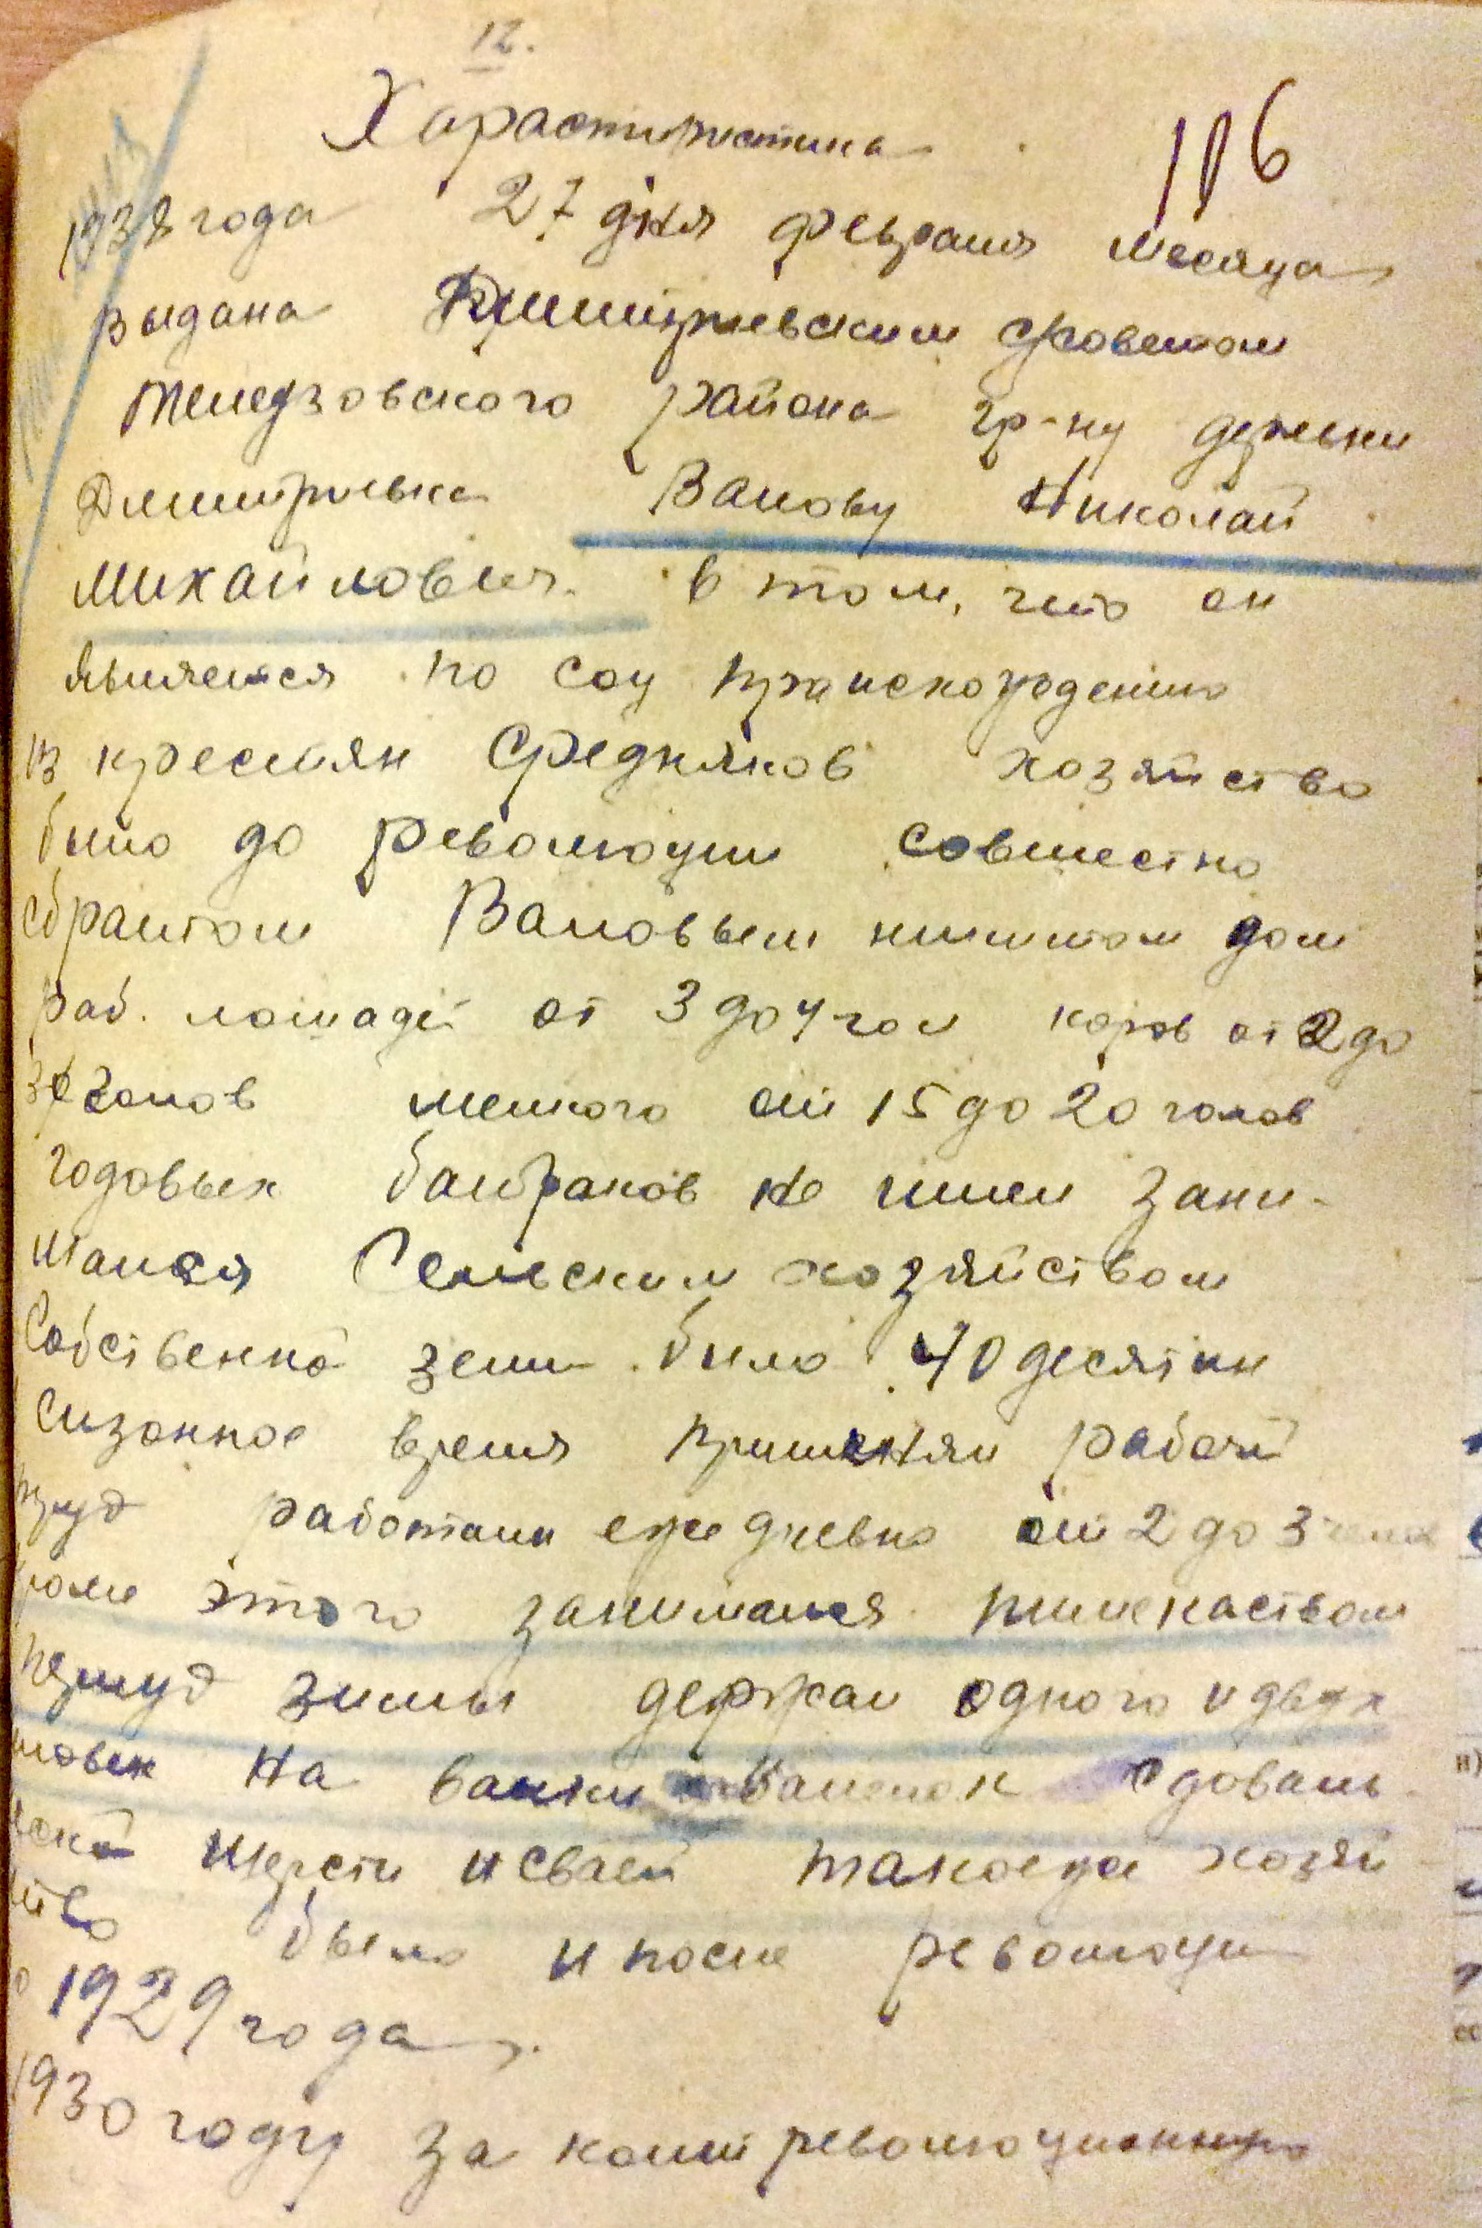 12.
Харастиристика
106
1938 года 27 дня февраля месяца
выдана Дмитриевским с/советом
района гр-ну деревни
Дмитриевка Валову Николай
Михайлович. в том, что он
является по соц происхождению
из крестьян Середняков хозяйство
было до революции совместно
сбратом Валовым имитом дом
раб. лошадей от 3 до 4 гол коров от 2 до
3х голов мелкого от 15 до 20 голов
Годовых батраков не имел Зани-
мался Сельским хозяйством
Собственной земли было 40 десятин
Сизонное время применял рабочий
труд работали ежедневно от 2 до 3 челов
кроме этого занимался
период зимы держал одного и двух
человек На валки валенок сдовали
шерсти и сваей такоеже хозяй
ство было и после революции
о 1929 года.
1930 году за контрреволюционную